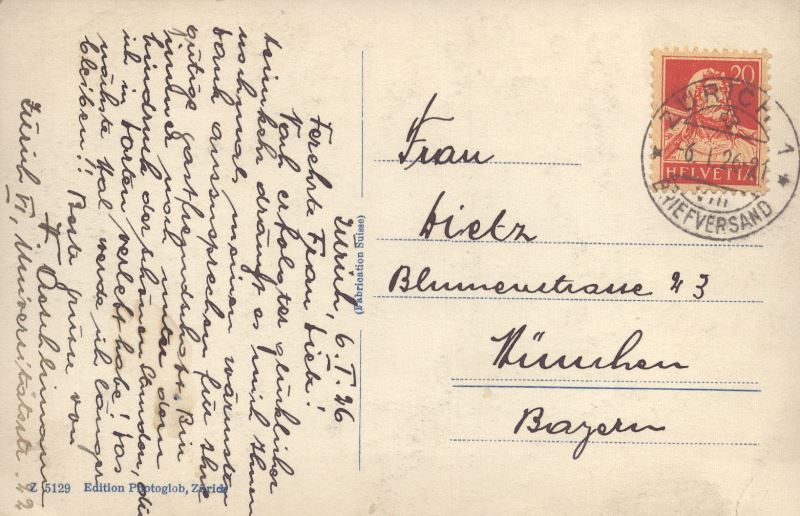 Zürich, 6. I. 26
Verehrte Frau Dietz!
Nach erfolgter glücklicher
Heimkehr drängt es mich Ihnen
nochmals meinen wärmsten
Dank auszusprechen für Ihre
gütige Gastfreundschaft. Bin
immer noch unter dem
Eindruck der schönen Stunden, die
ich in dorten verlebt habe! Das
nächste Mal werde ich länger
bleiben!! Beste Grüsse von
Zürich VI, Universitätsstr. 22
Frau
Dietz
Blumenstrasse 23
München
Bayern
20
HELVETIA
ZÜRICH 1
6. I. 26
VIII
BRIEFVERSAND
(Fabrication Suisse)
Z 5129 Edition Photoglob, Zürich